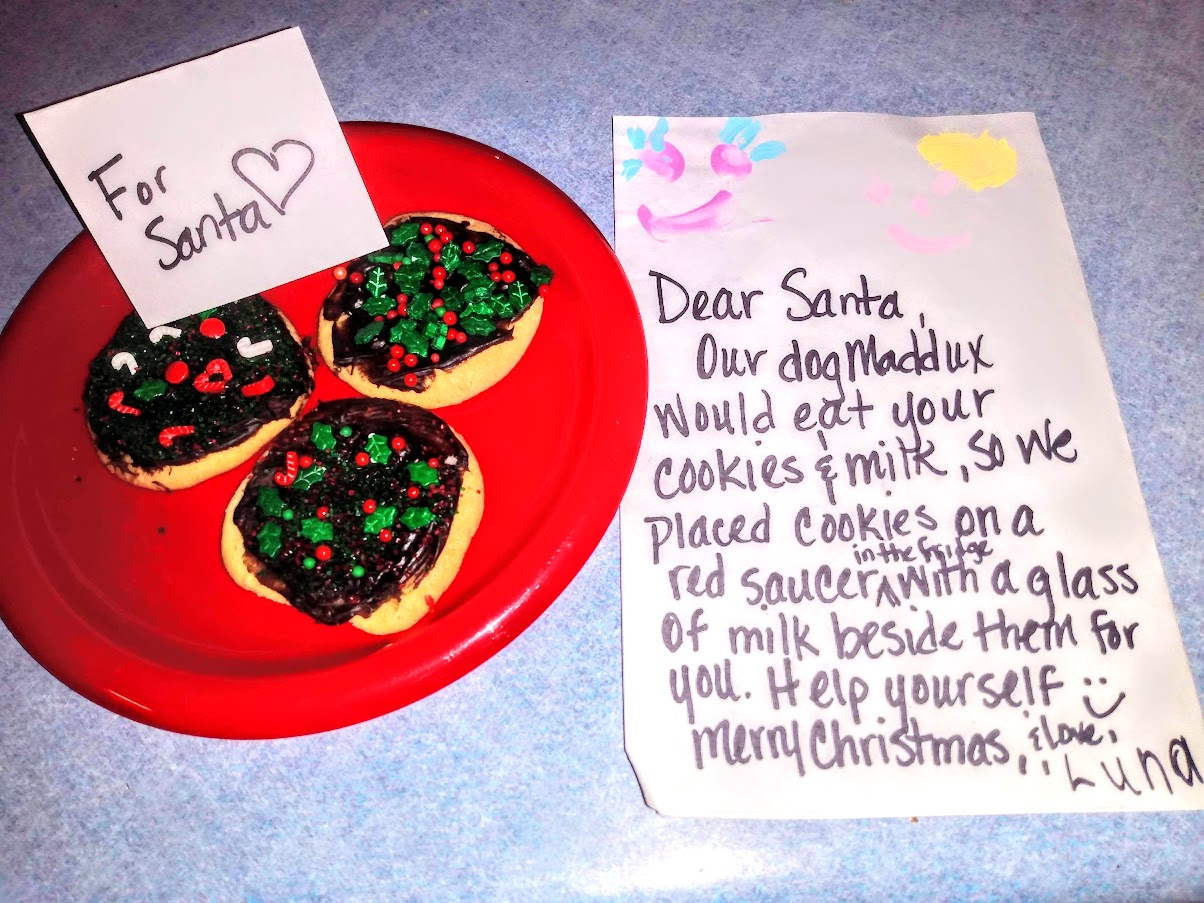 For
Santa
Dear Santa,
Our dog Maddux
would eat your
cookies & milk, so we
placed cookies on a
in the fridge
red saucer ^ with a glass
of milk beside them for
you. Help yourself
merry Christmas, & love,
Luna